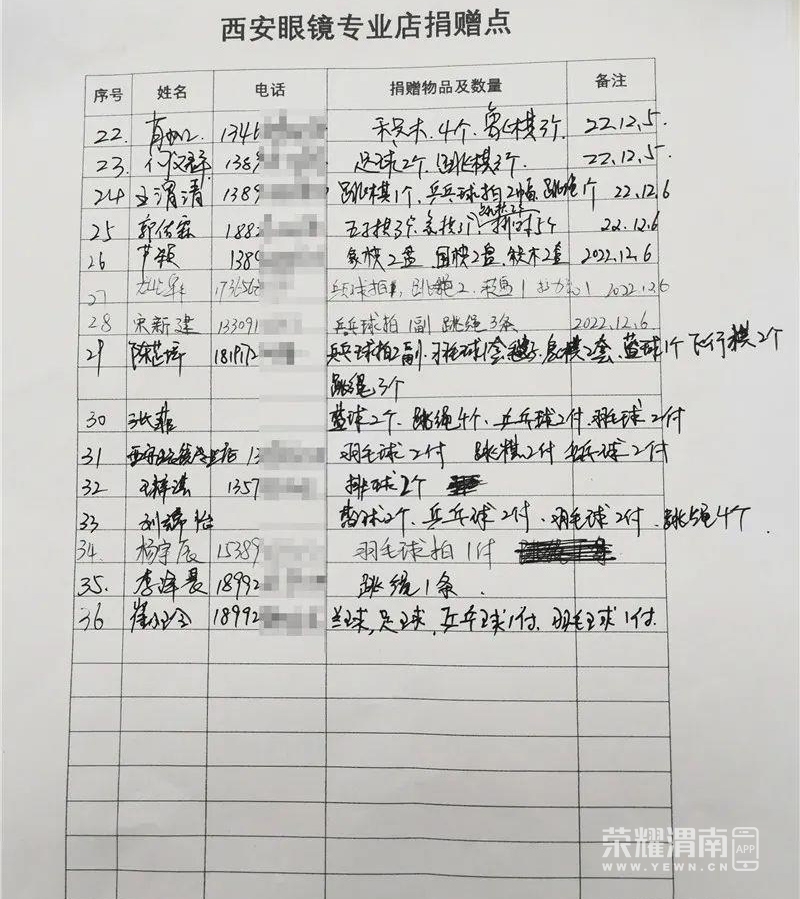 西安眼镜专业店捐赠点
序号 姓名 电话 捐赠物品及数量 备注
22. 1346 积木 4个, 象棋3个, 22.12.5.
23. 1389 足球2个, 跳棋3个, 22.12.5.
24 王渭清 1389 跳棋1个, 乒乓球拍2幅, 跳绳1个 22.12.6
25 郭佑霖 1882 五子棋3个, 象棋3个 22.12.6
26 芦颖 1389 象棋2盘 围棋2盘 积木2盒 2022.12.6
27 1736568 乒乓球拍 跳绳2. 1 1 2022.12.6
28 宋新建 133091 乒乓球拍1副 跳绳3条 2022.12.6
29 陈芝婷 1819172 乒乓球拍2副. 羽毛球1套 毽子. 象棋2套. 篮球1个 飞行棋2个
跳绳3个
30 张菲 篮球2个. 跳绳4个. 乒乓球2付. 羽毛球2付
31 13 羽毛球2付 跳棋2付 乒乓球2付
32 王梓淇 1357 排球2个
33 刘 怡 篮球2个、乒乓球2付、羽毛球2付、跳绳4个.
34. 杨宇辰 15389 羽毛球拍1付
35. 李 晨 18992 跳绳1条.
36 崔 18992 兰球, 足球, 乒乓球1付. 羽毛球1付.
荣耀渭南 APP
WWW.YEWN.CN